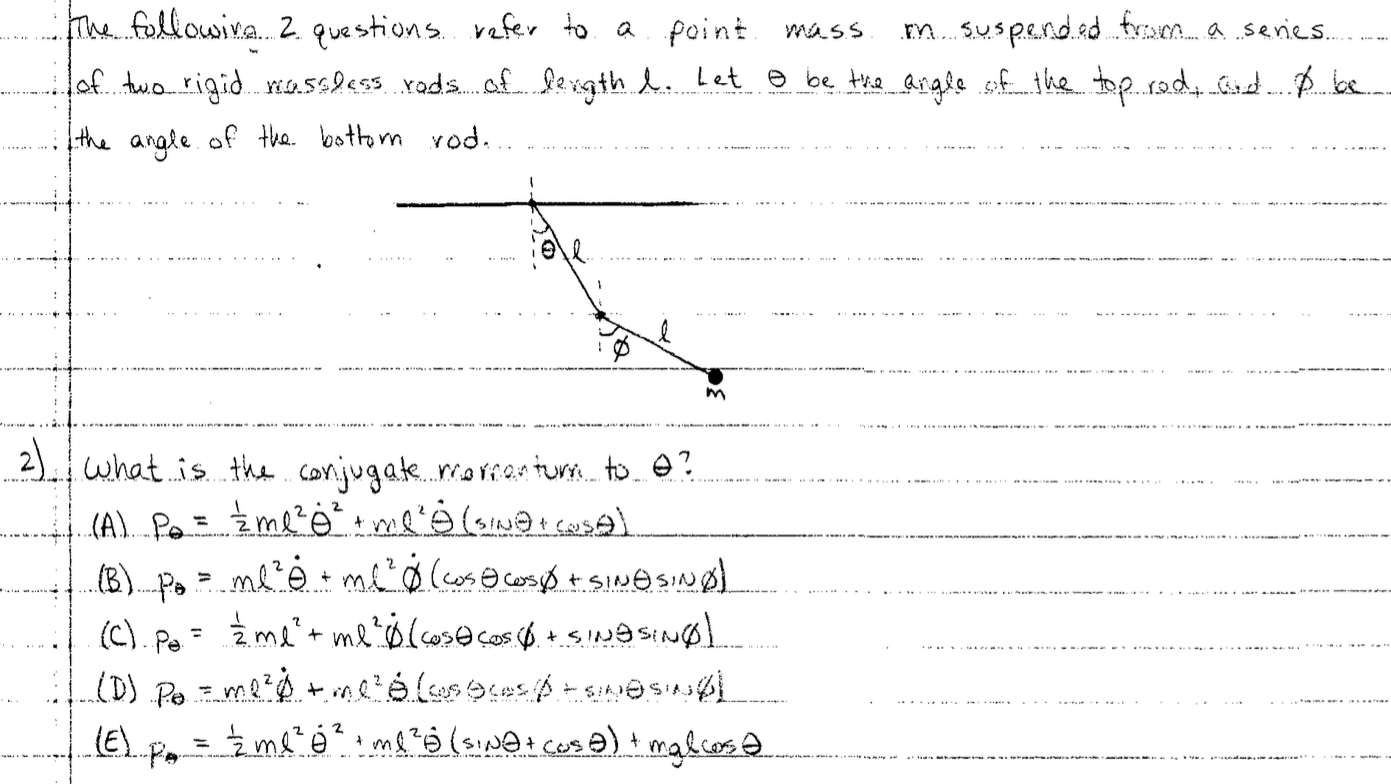 The following 2 questions refer to a point mass m suspended from a series
of two rigid massless rods of length l. Let θ be the angle of the top rod, and ϕ be
the angle of the bottom rod.
θ l
l
ϕ
m
2) What is the conjugate momentum to θ?
(A) p_θ = ½ml²θ̇² + ml²θ̇(sinθ + cosθ)
(B) p_θ = ml²θ̇ + ml²ϕ̇(cosθcosϕ + sinθsinϕ)
(C) p_θ = ½ml² + ml²ϕ̇(cosθcosϕ + sinθsinϕ)
(D) p_θ = ml²ϕ̇ + ml²θ̇(cosθcosϕ + sinθsinϕ)
(E) p_θ = ½ml²θ̇² + ml²θ̇(sinθ + cosθ) + mglcosθ